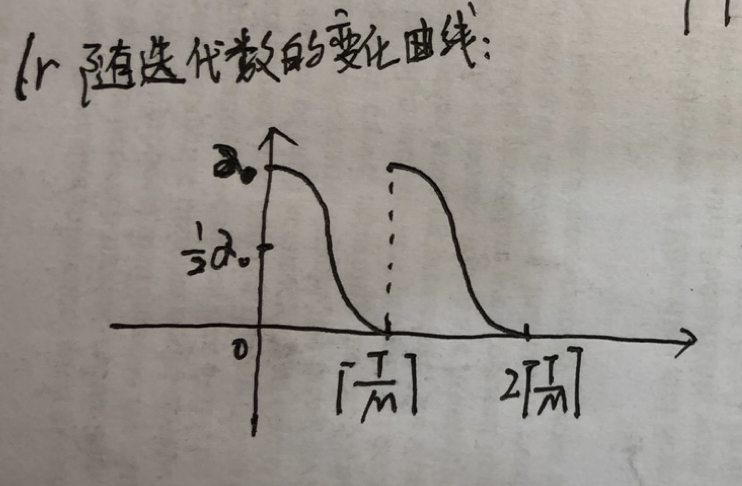 lr 随迭代数的变化曲线:
α₀
½α₀
0
⌈T/M⌉
2⌈T/M⌉